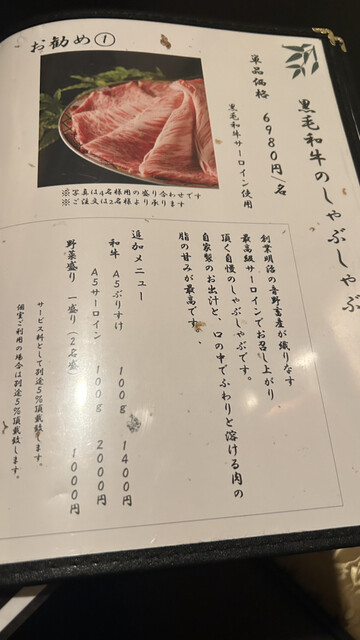 お勧め①
黒毛和牛のしゃぶしゃぶ
単品価格 6980円/名
黒毛和牛サーロイン使用
※写真は4名様用の盛り合わせです
※ご注文は2名様より承ります
創業明治の吉野畜産が織りなす
最高級サーロインでお召し上がり
頂く自慢のしゃぶしゃぶです。
自家製のお出汁と、口の中でふわりと溶ける肉の
脂の甘みが最高です。
追加メニュー
和牛 A5ぶりすけ 100g 1400円
A5サーロイン 100g 2000円
野菜盛り 一盛り(2名盛) 1000円
サービス料として別途5%頂戴致します。
個室ご利用の場合は別途5%頂戴致します。